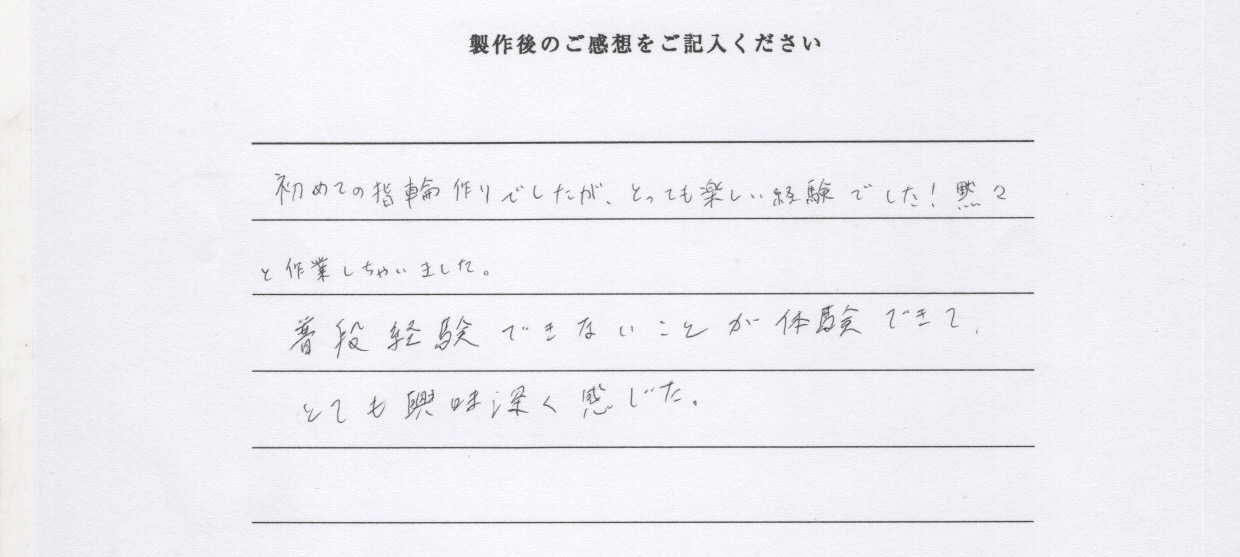 製作後のご感想をご記入ください
初めての指輪作りでしたが、とっても楽しい経験でした！黙々
と作業しちゃいました。
普段経験できないことが体験できて、
とても興味深く感じた。